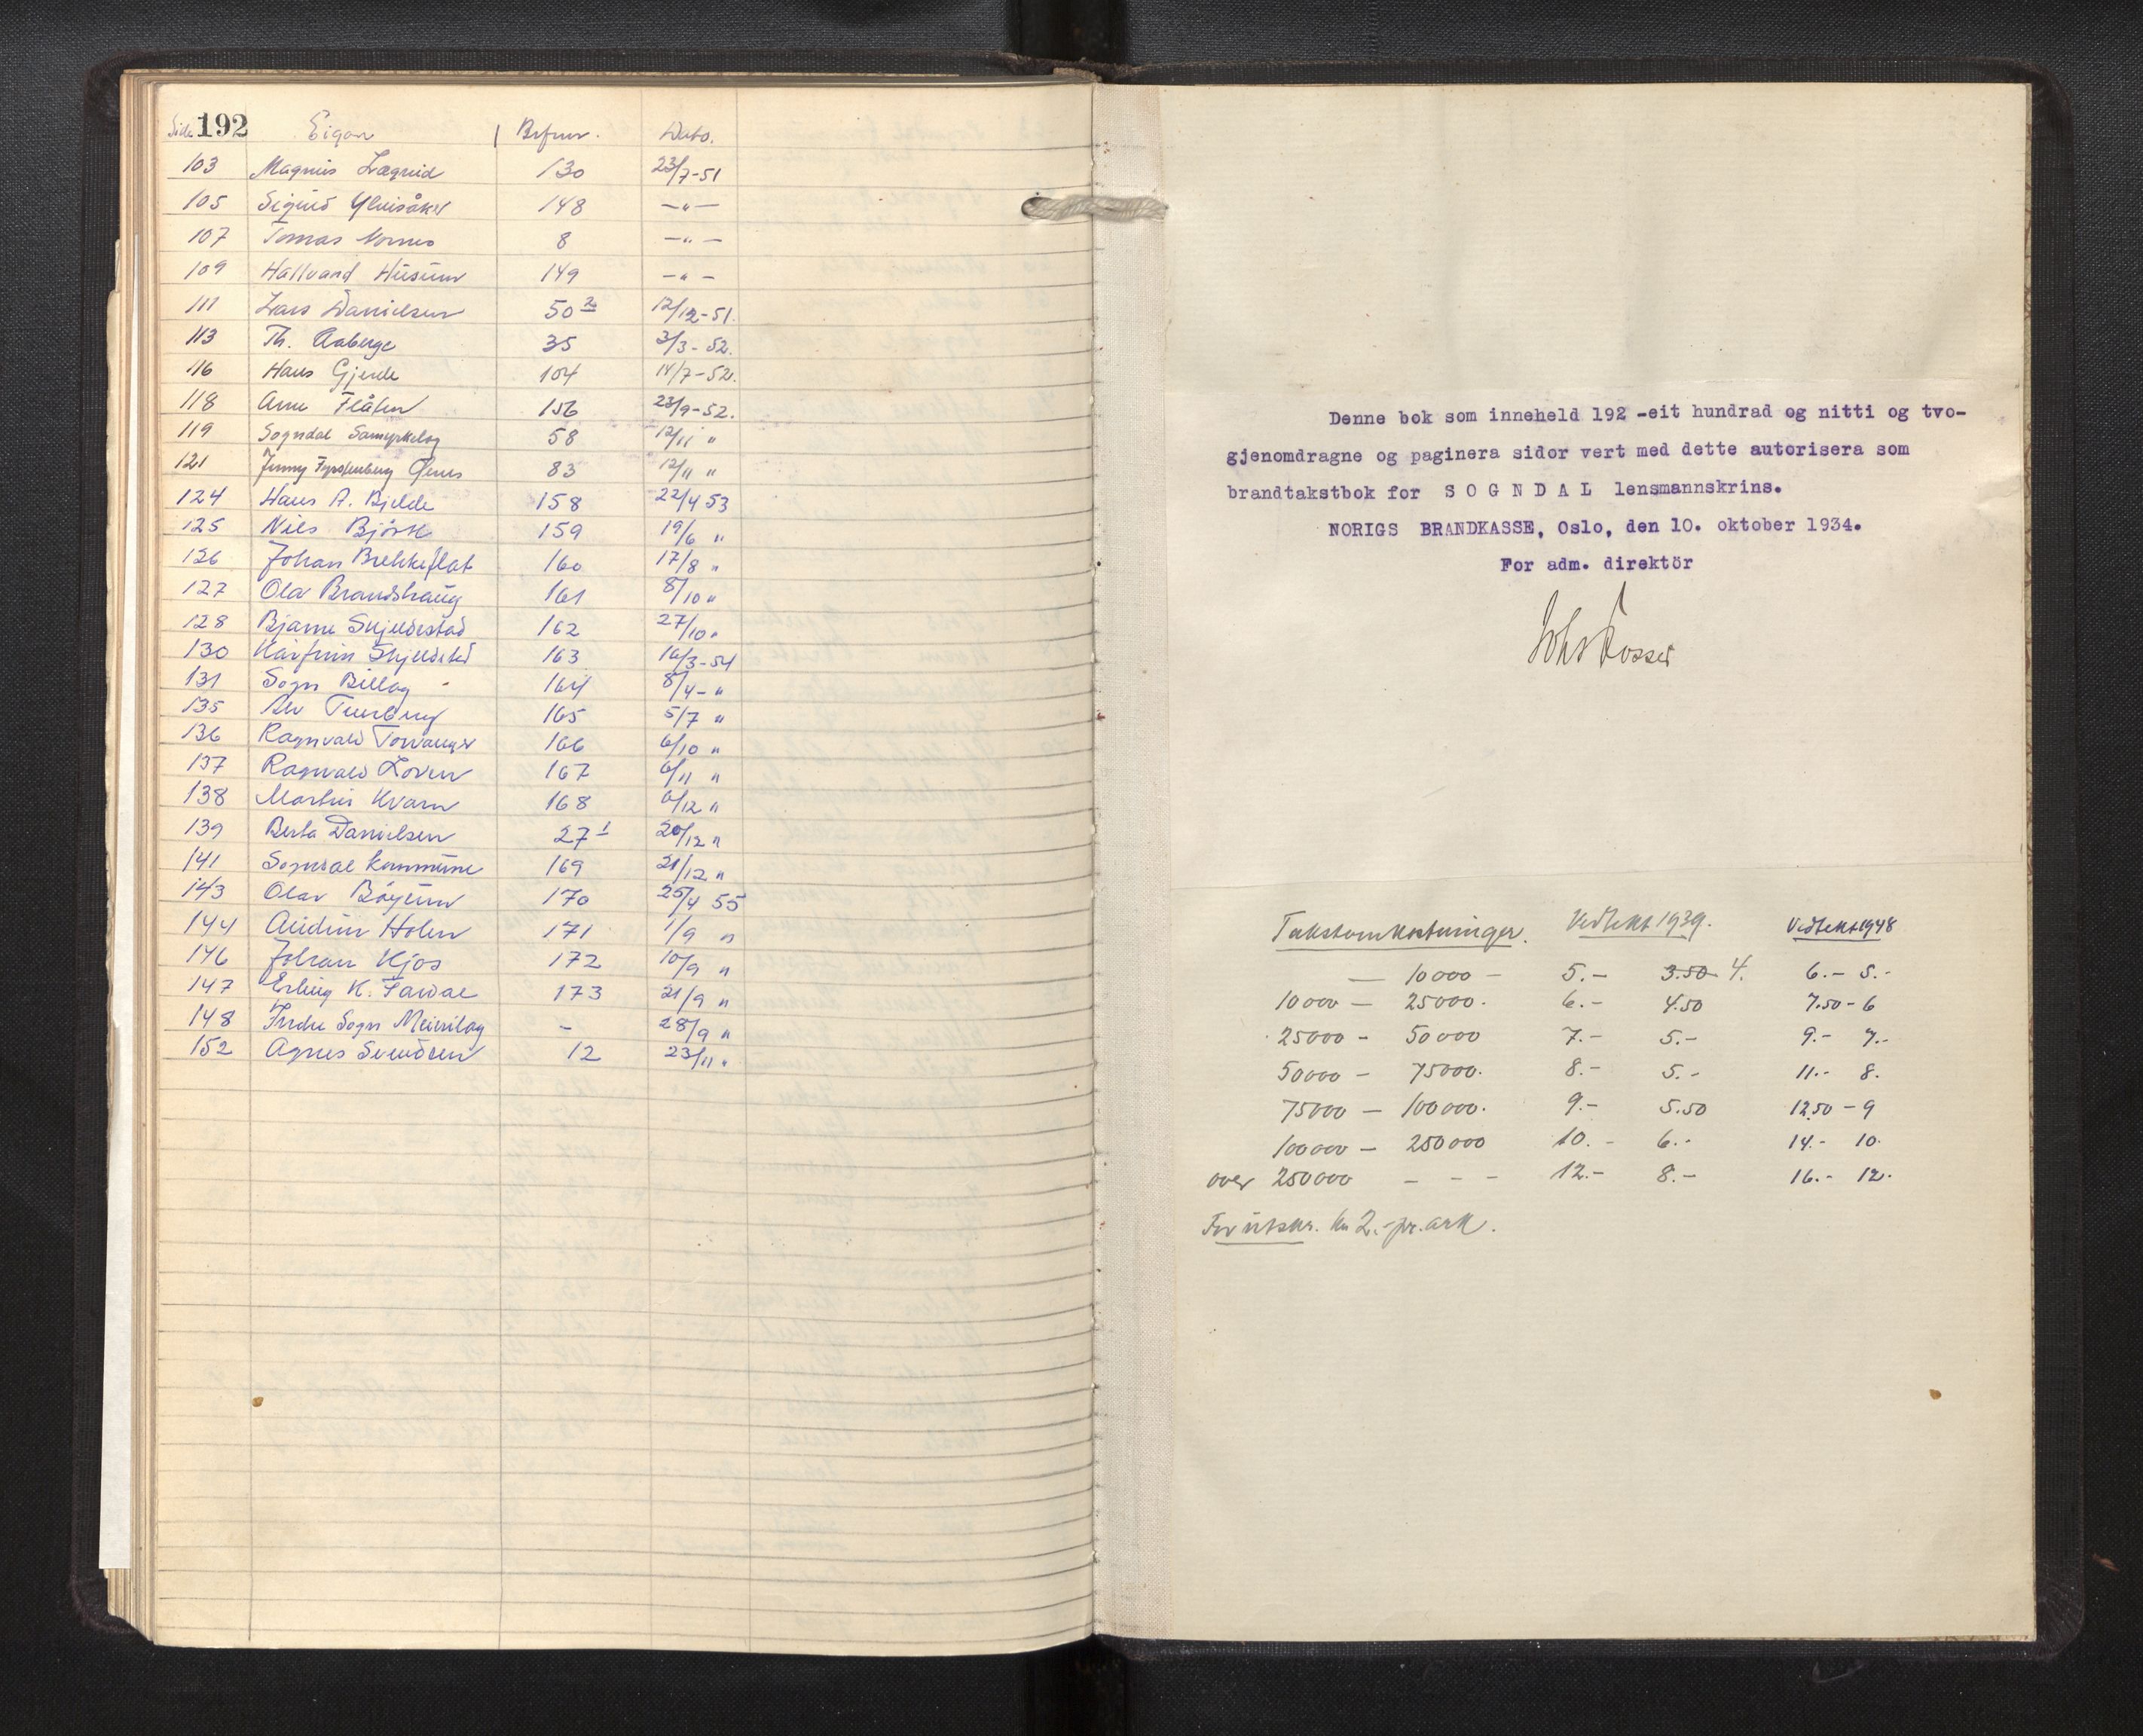 Side 192 Eigar Brfnr. Dato.
103 Magnus Lægreid 130 23/7-51
105 Sigurd Ylvisåker 148 —"—
107 Tomas Nornes 8 —"—
109 Hallvard Husum 149 —"—
111 Lars Danielsen 50 2 12/12-51.
113 Th. Aaberge 35 3/3-52.
116 Hans Gjerde 104 14/7-52.
118 Arne Flåten 156 23/9-52.
119 Sogndal Samyrkelag 58 12/11 "
121 Jenny 83 12/11 "
124 Hans A. Bjelde 158 22/4 53
125 Nils Björk 159 19/6 "
126 Johan Brekkeflat 160 17/8 "
127 Ola Brandshaug 161 8/10 "
128 Bjarne Skjeldestad 162 27/10 "
130 Kårfinn Skjeldestad 163 16/3-54
131 Sogn Billag 164 8/4- "
135 165 5/7 "
136 Ragnvald Torvanger 166 6/10 "
137 Ragnvald Loven 167 6/11 "
138 Martin Kvam 168 6/12 "
139 Berta Danielsen 27 1 20/12 "
141 Sogndal kommune 169 21/12 "
143 Olav Böyum 170 25/4 55
144 Audun Holen 171 1/9 "
146 Johan Kjos 172 10/9 "
147 Erling K. Fardal 173 21/9 "
148 Indre Sogn Meierilag - 28/9 "
152 Agnes Svendsen 12 23/11 "
Denne bok som inneheld 192 -eit hundrad og nitti og tvo-
gjenomdragne og paginera sidor vert med dette autorisera som
brandtakstbok for S O G N D A L lensmannskrins.
NORIGS BRANDKASSE, Oslo, den 10. oktober 1934.
For adm. direktör
Takstomkostninger. Vedtekt 1939. Vedtekt 1948
— 10000 — 5.- 3.50 4. 6.- 5.-
10000 — 25000. 6.- 4.50 7.50 - 6
25000 - 50000 7.- 5.- 9.- 7.-
50000 - 75000. 8.- 5.- 11.- 8.
75000 — 100000. 9.- 5.50 12.50 - 9
100000 — 250000 10.- 6.- 14.- 10.
over 250000 - - - 12.- 8.- 16.- 12.
For utskr. kr 2.- pr. ark.